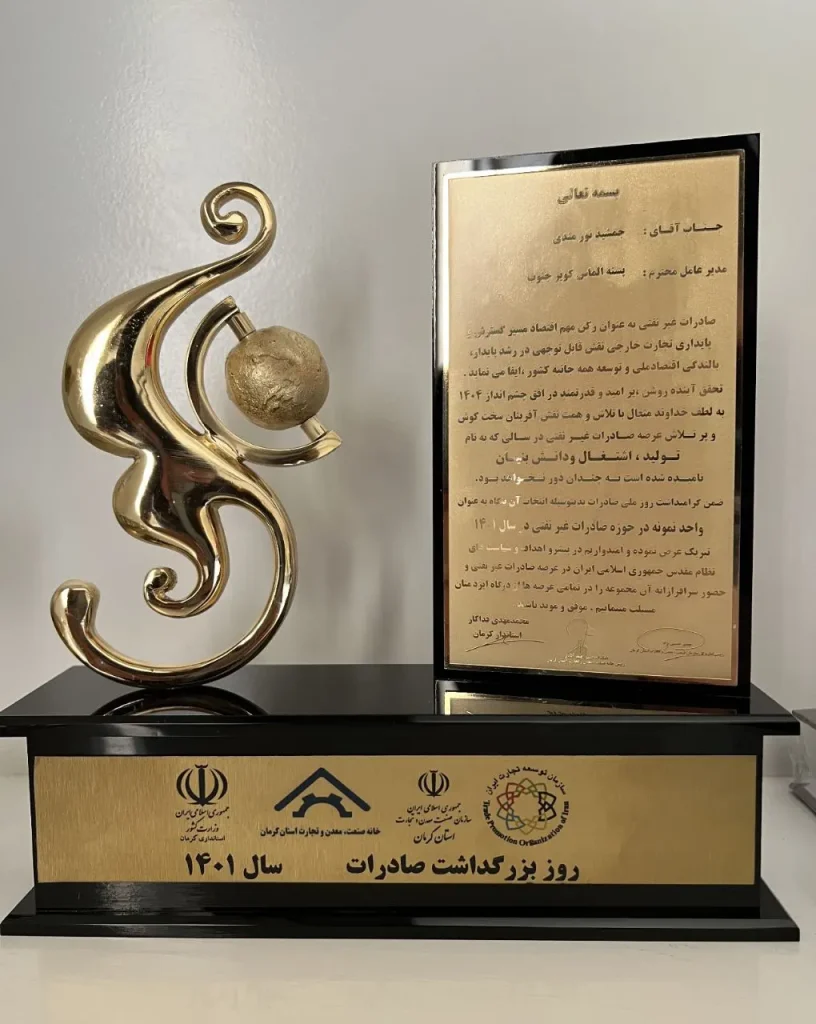 بسمه تعالی
جناب آقای : جمشید پور مندی
مدیر عامل محترم : پسته الماس کویر جنوب
صادرات غیر نفتی به عنوان رکن مهم اقتصاد مسیر گسترش و
پایداری تجارت خارجی نقش قابل توجهی در رشد پایدار،
بالندگی اقتصادملی و توسعه همه جانبه کشور ،ایفا می نماید .
تحقق آینده روشن ،پر امید و قدرتمند در افق چشم انداز ۱۴۰۴
به لطف خداوند متعال با تلاش و همت نقش آفرینان سخت کوش
و پر تلاش عرصه صادرات غیر نفتی در سالی که به نام
تولید ، اشتغال ودانش بنیان
نامیده شده است نه چندان دور نخواهد بود.
ضمن گرامیداشت روز ملی صادرات بدینوسیله انتخاب آن بنگاه به عنوان
واحد نمونه در حوزه صادرات غیر نفتی در سال ۱۴۰۱
تبریک عرض نموده و امیدواریم در پیشبرد اهداف و سیاست های
نظام مقدس جمهوری اسلامی ایران در عرصه صادرات غیر نفتی و
حضور سرافرازانه آن مجموعه را در تمامی عرصه ها از درگاه ایزد منان
مسئلت مینمائیم . موفق و موید باشید
محمدمهدی فداکار
استاندار کرمان
جمهوری اسلامی ایران
وزارت کشور
استانداری کرمان
خانه صنعت، معدن و تجارت استان کرمان
جمهوری اسلامی ایران
سازمان صنعت معدن و تجارت
استان کرمان
سازمان توسعه تجارت ایران
Trade Promotion Organization of Iran
روز بزرگداشت صادرات سال ۱۴۰۱